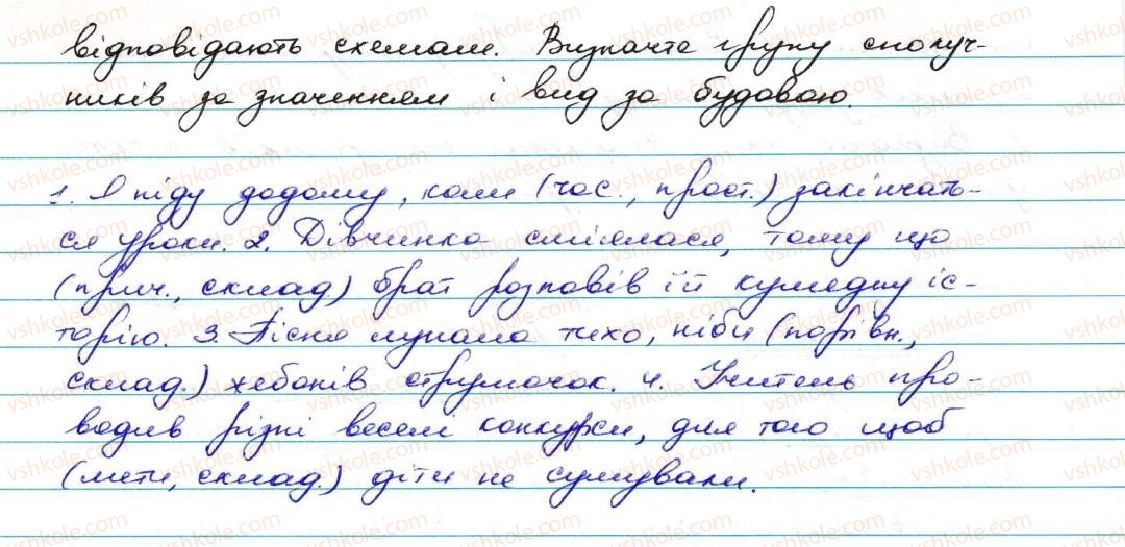 відповідають схемам. Визначте групу сполуч-
ників за значенням і вид за будовою.
1. Я піду додому, коли (час., прост.) закінчать-
ся уроки. 2. Дівчинка сміялася, тому що
(прич., склад.) брат розповів їй кумедну іс-
торію. 3. Пісня лунала тихо, ніби (порівн.,
склад.) жебонів струмочок. 4. Учитель про-
водив різні веселі конкурси, для того щоб
(мети, склад.) діти не сумували.